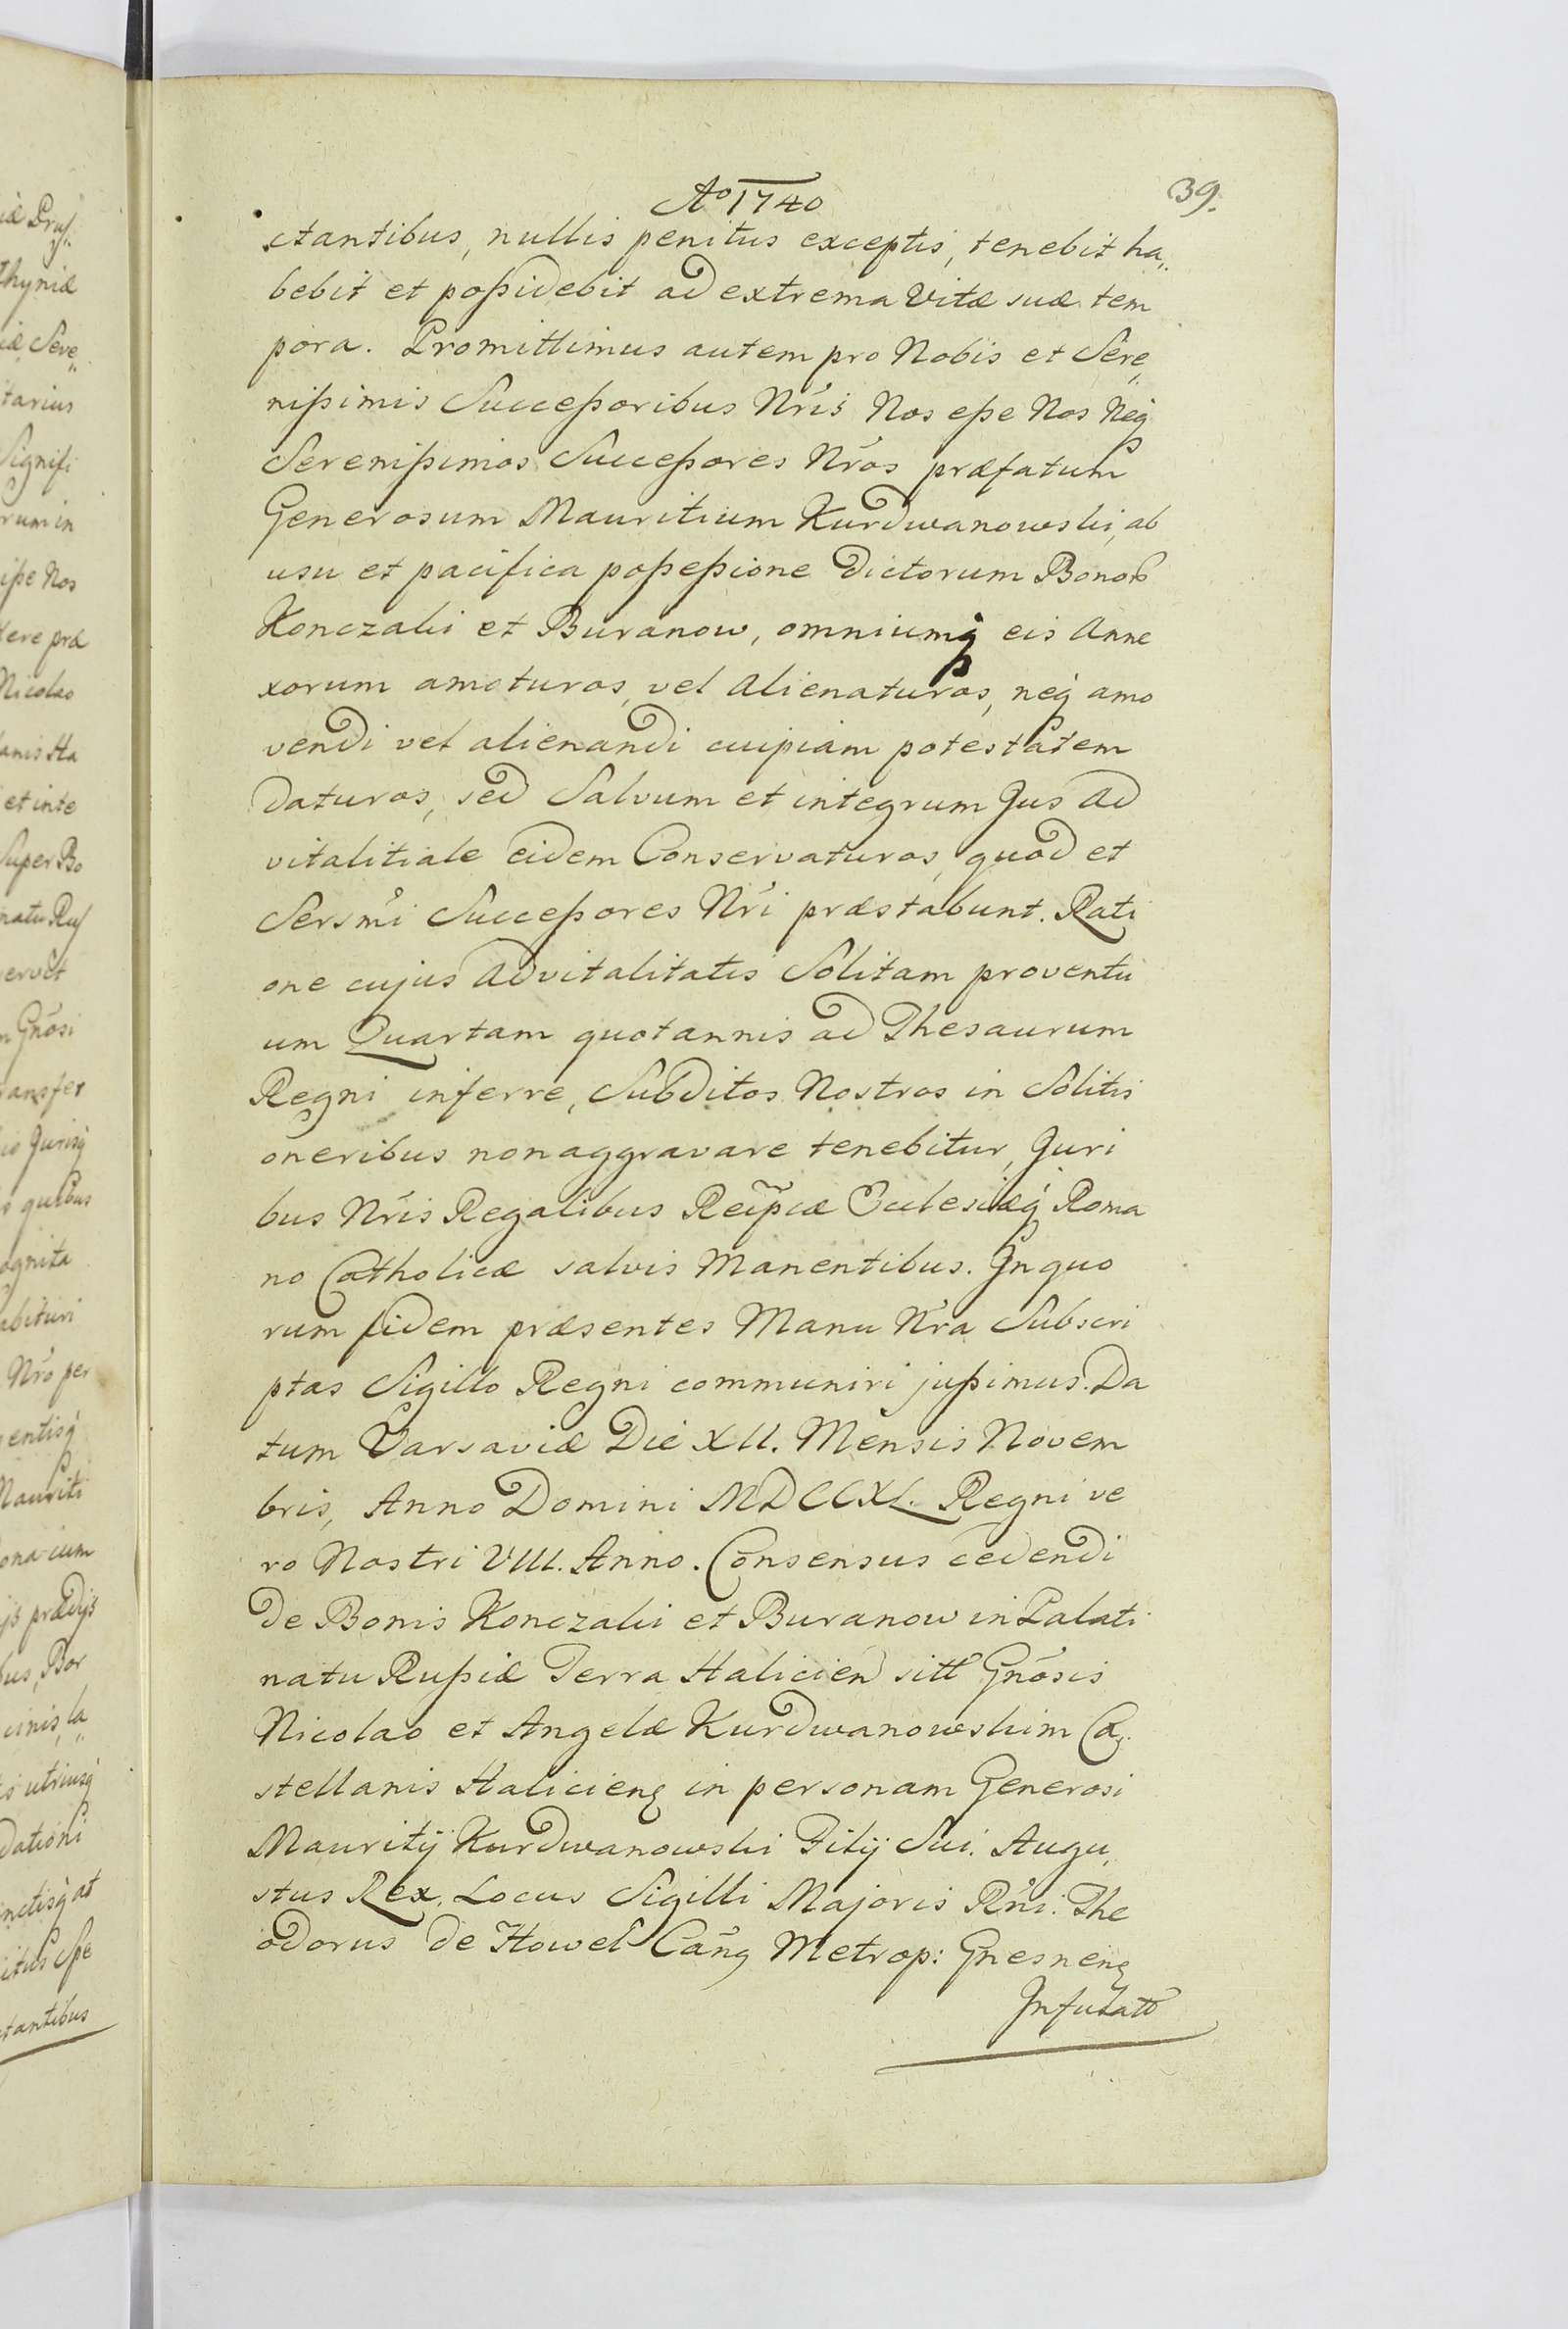 Aō 1740
39.
ctantibus, nullis penitus exceptis, tenebit ha„
bebit et poßidebit ad extrema Vitæ suæ tem
pora. Promittimus autem pro Nobis et Sere„
nißimis Succeßoribus Nr̃is Nos eße Nos Neq́
Serenißimos Succeßores Nr̃os præfatum
Generosum Mauritium Kurdwanowski, ab
usu et pacifica poßeßione dictorum Bonor̃
Konczaki et Buranow, omniumq́ eis Anne
xorum amoturos, vel Alienaturos, neq́ amo
vendi vel alienandi cuipiam potestatem
daturos, sed Salvum et integrum Jus ad
vitalitiale eidem Conservaturos, quod et
Sersm̃i Succeßores Nr̃i præstabunt. Rati
one cujus Advitalitatis Solitam proventu
um Quartam quotannis ad Thesaurum
Regni inferre, Subditos Nostros in Solitis
oneribus non aggravare tenebitur, Juri
bus Nr̃is Regalibus Reip̃cæ Ecclesiæq́ Roma
no Catholicæ salvis Manentibus. In quo
rum fidem præsentes Manu Nr̃a Subscri
ptas Sigillo Regni communiri jußimus. Da
tum Varsaviæ Die XII. Mensis Novem
bris, Anno Domini MDCCXL. Regni ve
ro Nostri VIII. Anno. Consensus cedendi
de Bonis Konczaki et Buranow in Palati
natu Rußiæ Terra Halicien̄ sitt̃ Gñosis
Nicolao et Angelæ Kurdwanowskim Ca„
stellanis Halicieng in personam Generosi
Mauritij Kurdwanowski Filij Sui. Augu„
stus Rex. Locus Sigilli Majoris Rñi. The
odorus de Howel Cañg Metrop: Gnesneng
Infulatt̃
iæ Pruß:
thyniæ
iæ Sere„
tarius
Signifi
rum in
ipse Nos
dere præ
Nicolao
lanis Ha
et inte
Super Bo
natu Ruß
Gñosi
ransfer
Jurisq́
quibus
ognita
abituri
Nr̃o per
entisq́
Mauriti
ona cum
ijs prædijs
bus, Bor
cinis, la„
utriusq́
dationi
nctisq́ at
itus Spe
ctantibus